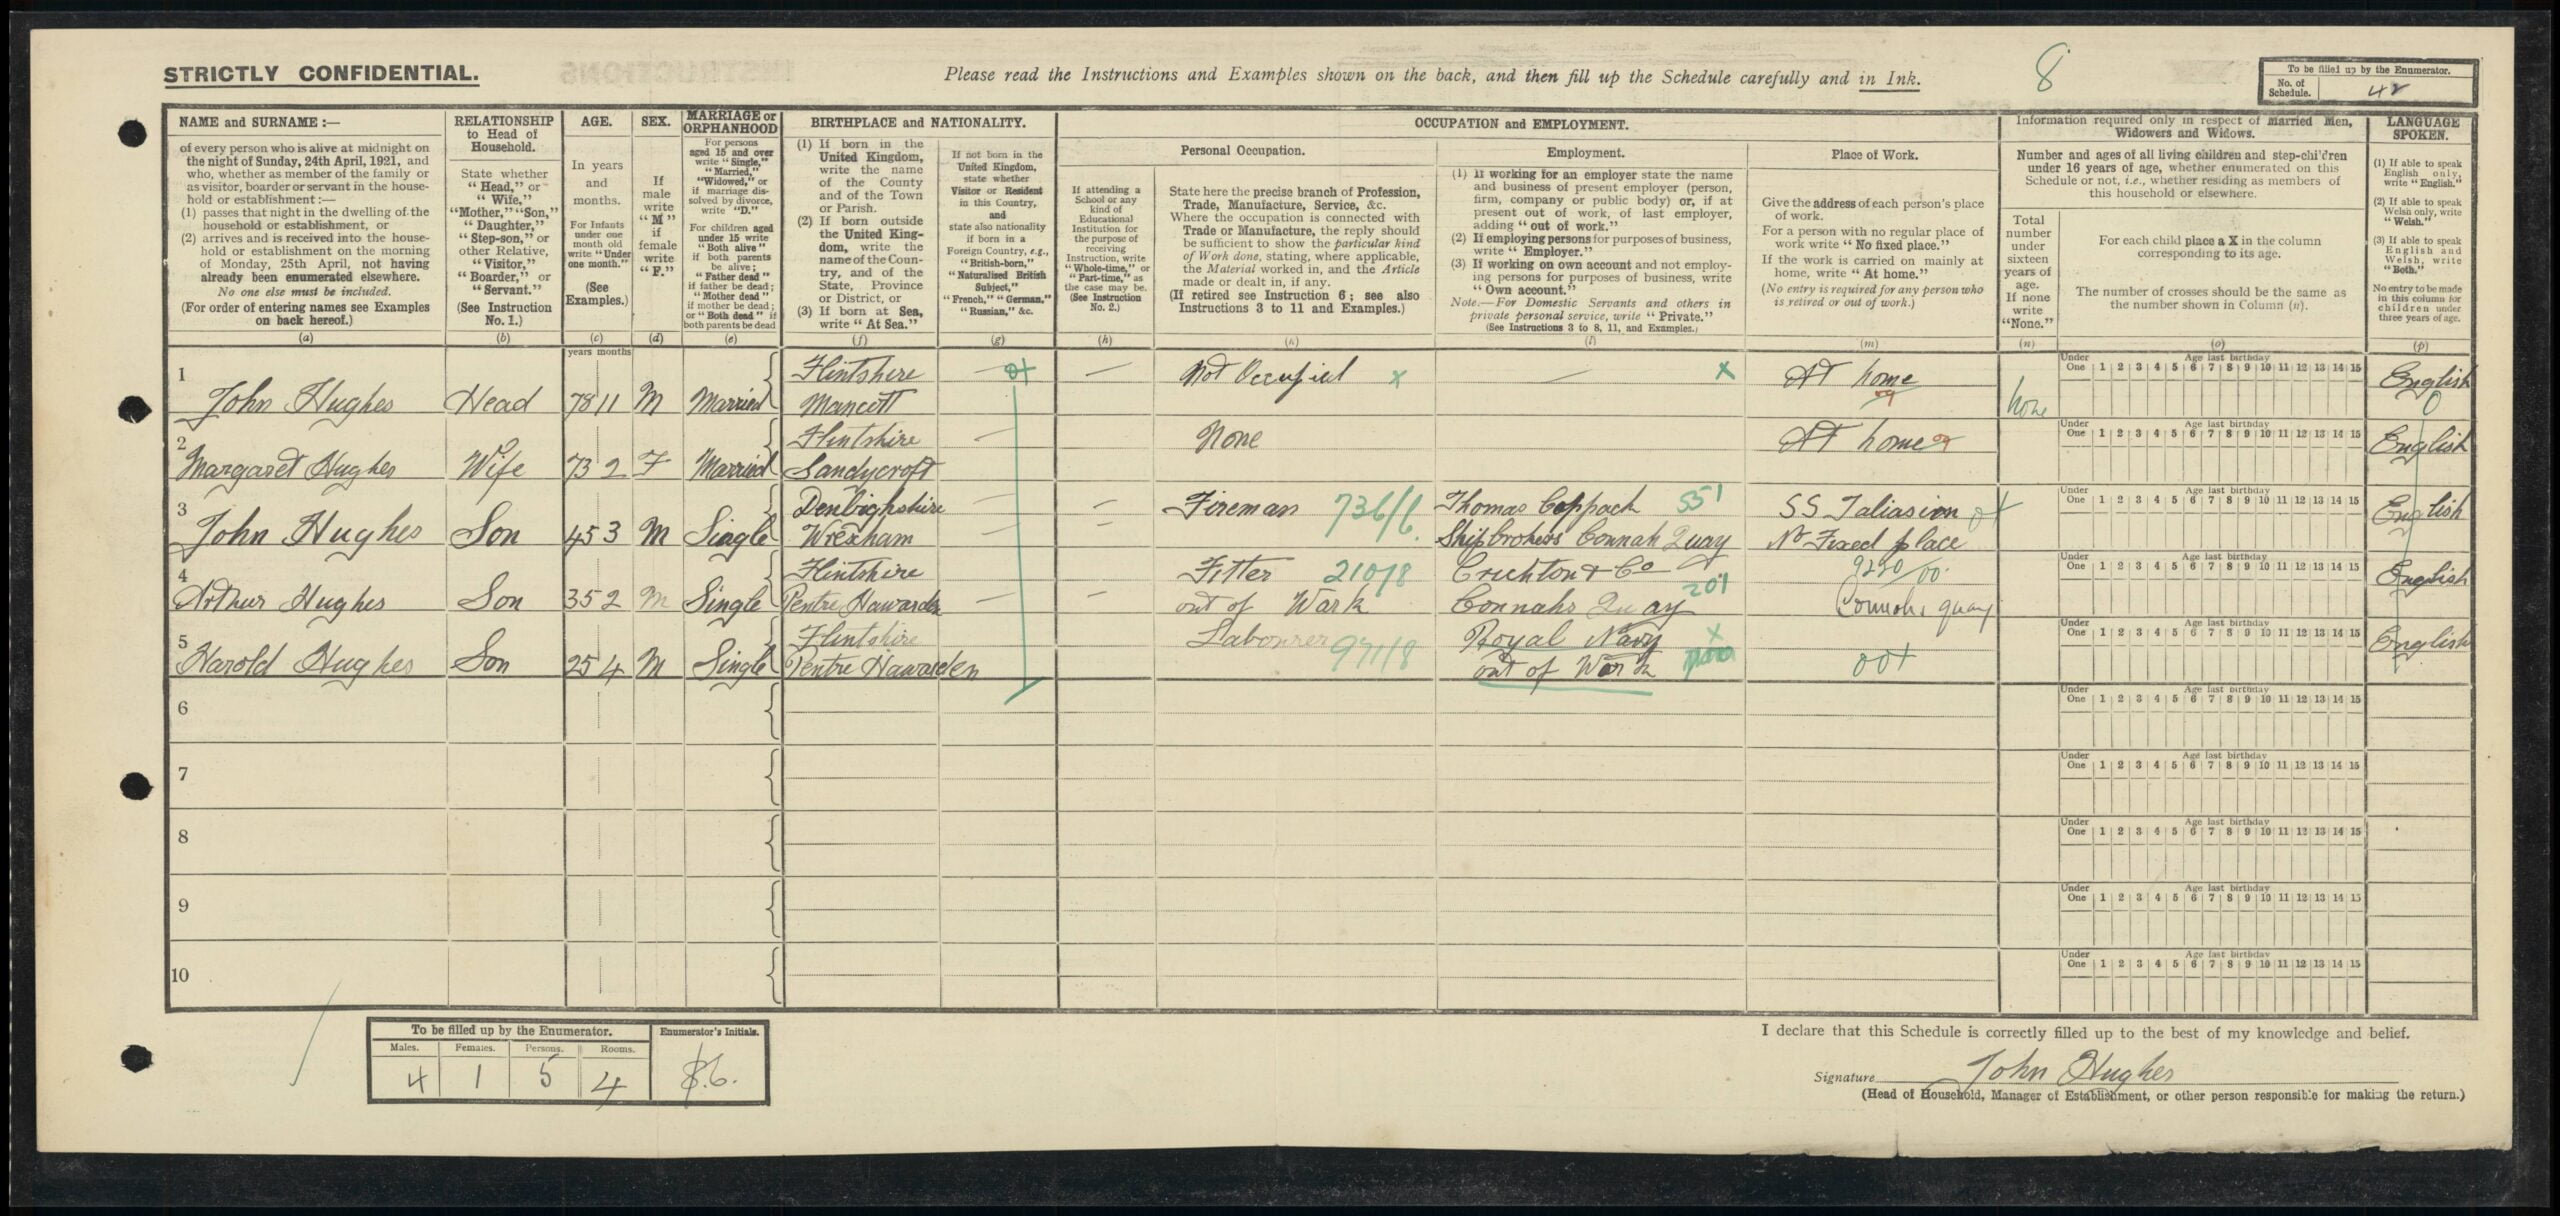 STRICTLY CONFIDENTIAL.
Please read the Instructions and Examples shown on the back, and then fill up the Schedule carefully and in Ink.
8
To be filled up by the Enumerator.
No. of Schedule. 42
NAME and SURNAME :—
of every person who is alive at midnight on
the night of Sunday, 24th April, 1921, and
who, whether as member of the family or
as visitor, boarder or servant in the house-
hold or establishment :—
(1) passes that night in the dwelling of the
household or establishment, or
(2) arrives and is received into the house-
hold or establishment on the morning
of Monday, 25th April, not having
already been enumerated elsewhere.
No one else must be included.
(For order of entering names see Examples
on back hereof.)
(a)
RELATIONSHIP
to Head of
Household.
State whether
"Head," or
"Wife,"
"Mother," "Son,"
"Daughter,"
"Step-son," or
other Relative,
"Visitor,"
"Boarder," or
"Servant."
(See Instruction
No. 1.)
(b)
AGE.
In years
and
months.
For Infants
under one
month old
write "Under
one month."
(See
Examples.)
(c)
SEX.
If
male
write
"M"
if
female
write
"F."
(d)
MARRIAGE or
ORPHANHOOD
For persons
aged 15 and over
write "Single,"
"Married,"
"Widowed," or
if marriage dis-
solved by divorce,
write "D."
For children aged
under 15 write
"Both alive"
if both parents
be alive;
"Father dead"
if father be dead;
"Mother dead"
if mother be dead;
or "Both dead" if
both parents be dead
(e)
BIRTHPLACE and NATIONALITY.
(1) If born in the
United Kingdom,
write the name
of the County
and of the Town
or Parish.
(2) If born outside
the United King-
dom, write the
name of the Coun-
try, and of the
State, Province
or District, or
(3) If born at Sea,
write "At Sea."
(f)
If not born in the
United Kingdom,
state whether
Visitor or Resident
in this Country,
and
state also nationality
if born in a
Foreign Country, e.g.,
"British-born,"
"Naturalised British
Subject,"
"French," "German,"
"Russian," &c.
(g)
OCCUPATION and EMPLOYMENT.
If attending a
School or any
kind of
Educational
Institution for
the purpose of
receiving
Instruction, write
"Whole-time," or
"Part-time," as
the case may be.
(See Instruction
No. 2.)
(h)
Personal Occupation.
State here the precise branch of Profession,
Trade, Manufacture, Service, &c.
Where the occupation is connected with
Trade or Manufacture, the reply should
be sufficient to show the particular kind
of Work done, stating, where applicable,
the Material worked in, and the Article
made or dealt in, if any.
(If retired see Instruction 6; see also
Instructions 3 to 11 and Examples.)
(k)
Employment.
(1) If working for an employer state the name
and business of present employer (person,
firm, company or public body) or, if at
present out of work, of last employer,
adding "out of work."
(2) If employing persons for purposes of business,
write "Employer."
(3) If working on own account and not employ-
ing persons for purposes of business, write
"Own account."
Note.—For Domestic Servants and others in
private personal service, write "Private."
(See Instructions 3 to 8, 11, and Examples.)
(l)
Place of Work.
Give the address of each person's place
of work.
For a person with no regular place of
work write "No fixed place."
If the work is carried on mainly at
home, write "At home."
(No entry is required for any person who
is retired or out of work.)
(m)
Information required only in respect of Married Men,
Widowers and Widows.
Number and ages of all living children and step-children
under 16 years of age, whether enumerated on this
Schedule or not, i.e., whether residing as members of
this household or elsewhere.
Total
number
under
sixteen
years of
age.
If none
write
"None."
(n)
For each child place a X in the column
corresponding to its age.
The number of crosses should be the same as
the number shown in Column (n).
(o)
LANGUAGE
SPOKEN.
(1) If able to speak
English only,
write "English."
(2) If able to speak
Welsh only, write
"Welsh."
(3) If able to speak
English and
Welsh, write
"Both."
No entry to be made
in this column for
children under
three years of age.
(p)
years months
1 John Hughes Head 78 11 M Married Flintshire Mancott — — Not Occupied x — x At home None English
2 Margaret Hughes Wife 73 2 F Married Flintshire Sandycroft — None At home English
3 John Hughes Son 45 3 M Single Denbighshire Wrexham — — Fireman 736/6. Thomas Coppack 551 Shipbrokers Connah Quay SS Taliasion No Fixed place English
4 Arthur Hughes Son 35 2 M Single Flintshire Pentre Hawarden — — Fitter 210/8 out of Work Crichton & Co Connahs Quay 201 9220/00. Connahs quay English
5 Harold Hughes Son 25 4 M Single Flintshire Pentre Hawarden Labourer 971/8 Royal Navy x out of Work 00+ English
6
7
8
9
10
Under One 1 2 3 4 5 6 7 8 9 10 11 12 13 14 15
Age last birthday
To be filled up by the Enumerator.
Males. Females. Persons. Rooms.
4 1 5 4
Enumerator's Initials.
I declare that this Schedule is correctly filled up to the best of my knowledge and belief.
Signature John Hughes
(Head of Household, Manager of Establishment, or other person responsible for making the return.)